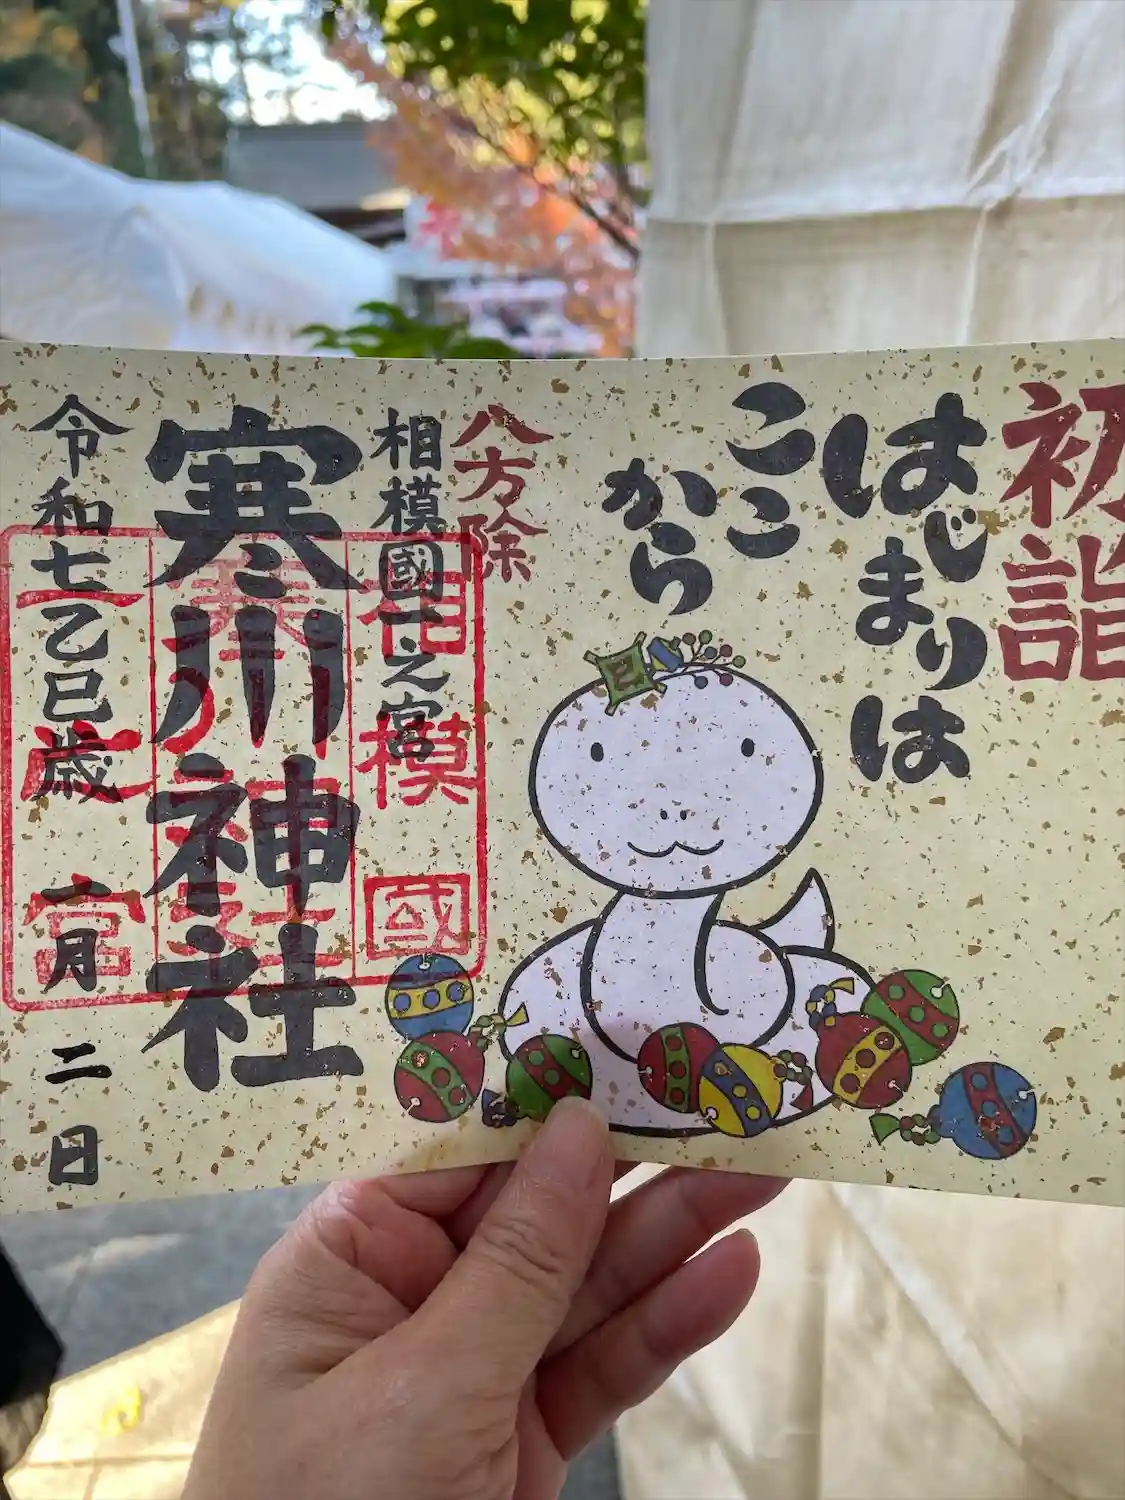 初詣
はじまりは
ここ
から
巳
八方除
相模國一之宮
寒川神社
令和七乙巳歳 一月二日
相模國
一之宮